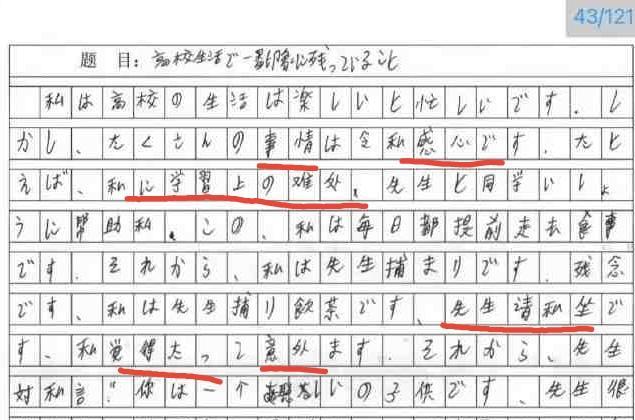 43/121
題 目：高校生活で一番印象に残っていること
私は高校の生活は楽しいと忙しいです．し
かし、たくさんの事情は令私感心です．たと
えば、私に学習上の难処。先生と同学いしょ
うに幇助私。この、私は毎日都提前走去食事
です．それから、私は先生捕まりです．残念
です、私は先生捕り飲茶です、先生请私坐で
す、私覚得太って意外ます．それから、先生
対私言：“你は一个 いの子供です、先生很